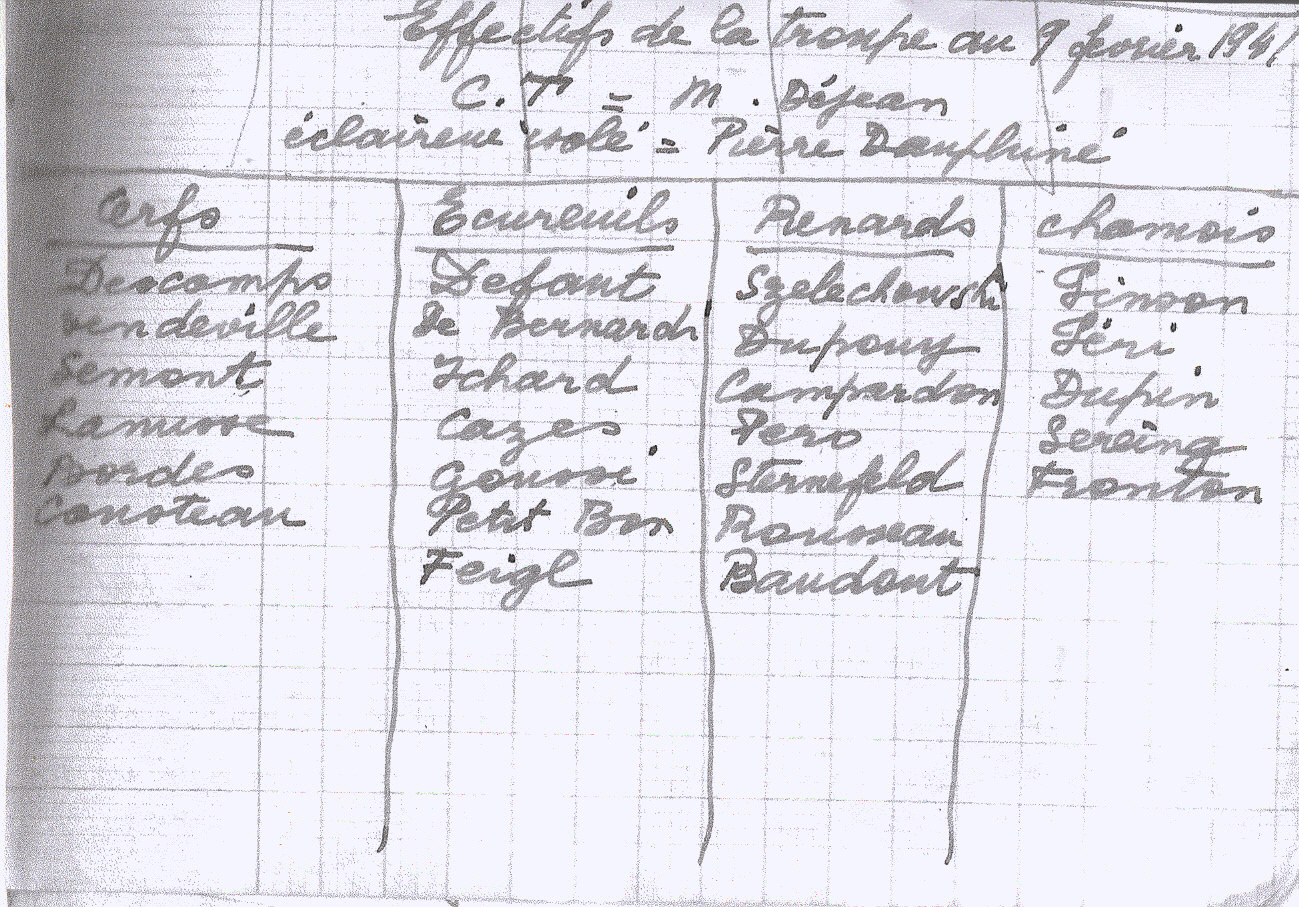 Effectifs de la troupe au 9 février 1941
C.T = M. Déjean
éclaireur isolé = Pierre Dauphiné
Cerfs
Descamps
Vendeville
Semont
Lanusse
Bordes
Cousteau
Ecureuils
Defaut
De Bernardi
Ichard
Cazes
Goussi
Petit Bon
Feigl
Renards
Szelechowski
Dupouy
Campardon
Pero
Sternefeld
Rousseau
Baudont
chamois
Simson
Séri
Dupin
Sereing
Fronton